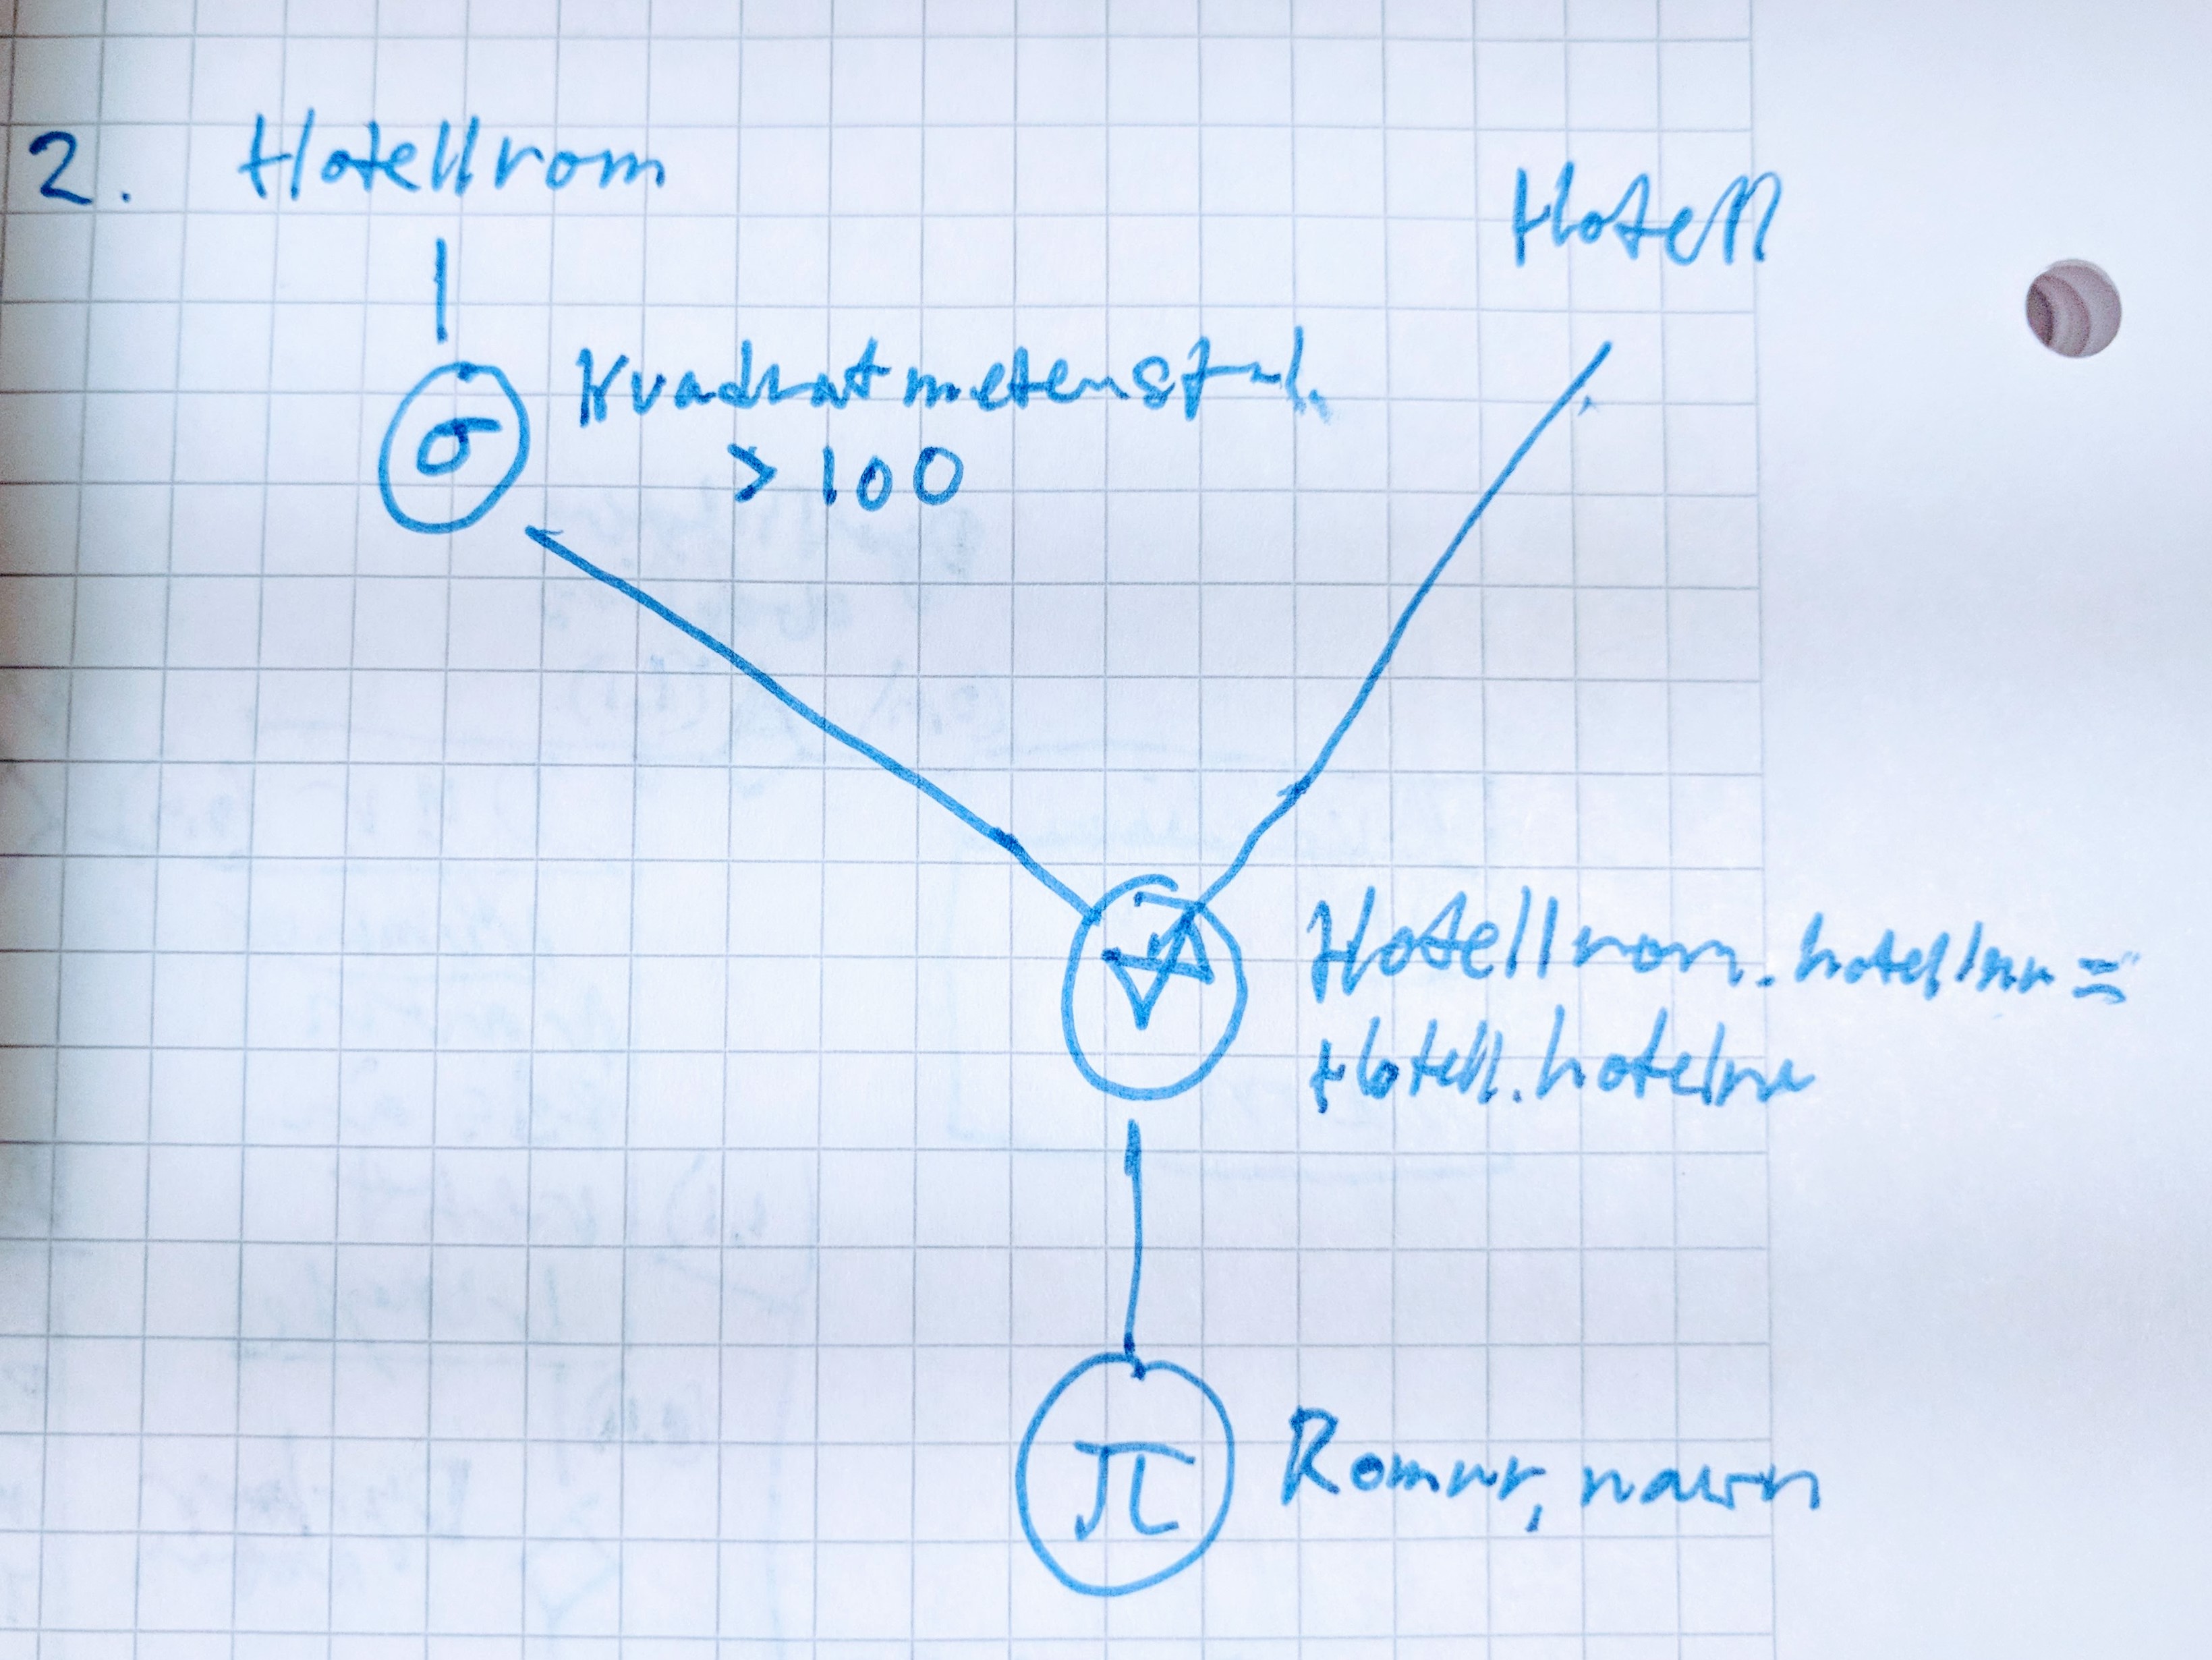 2. Hotellrom
Hotell
σ Kvadratmeterstal
> 100
Hotellrom.hotellnr =
Hotell.hotelnr
π Romnr, navn